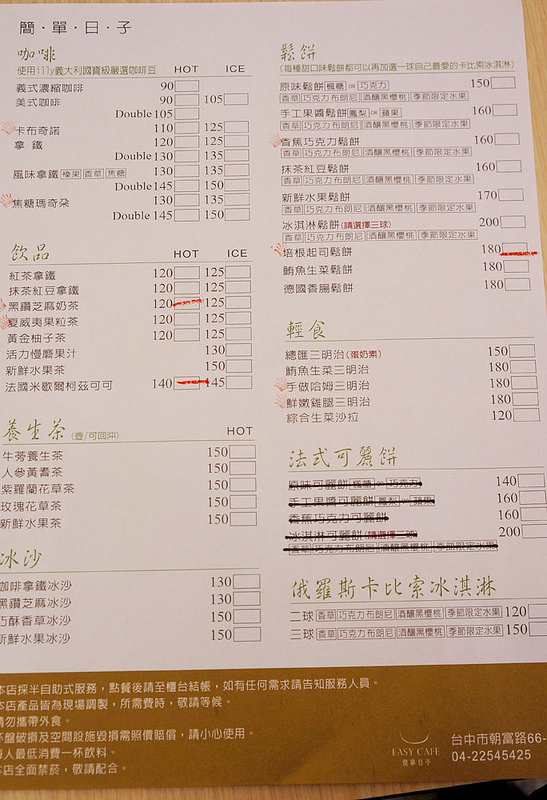 簡・單・日・子
咖啡
使用illy義大利國寶級嚴選咖啡豆 HOT ICE
義式濃縮咖啡 90
美式咖啡 90 105
Double 105
卡布奇諾 110 125
拿鐵 120 125
Double 130 135
風味拿鐵 榛果 香草 焦糖 130 135
Double 145 150
焦糖瑪奇朵 130 135
Double 145 150
飲品 HOT ICE
紅茶拿鐵 120 125
抹茶紅豆拿鐵 120 125
黑鑽芝麻奶茶 120 125
夏威夷果粒茶 120 125
黃金柚子茶 120 125
活力慢磨果汁 130
新鮮水果茶 150
法國米歇爾柯茲可可 140 145
養生茶 (壺/可回沖) HOT
牛蒡養生茶 150
人參黃耆茶 150
紫羅蘭花草茶 150
玫瑰花草茶 150
新鮮水果茶 150
冰沙
咖啡拿鐵冰沙 130
黑鑽芝麻冰沙 130
巧酥香草冰沙 150
新鮮水果冰沙 150
鬆餅
(每種甜口味鬆餅都可以再加選一球自己最愛的卡比索冰淇淋)
原味鬆餅 楓糖 OR 巧克力 150
香草 巧克力布朗尼 酒釀黑櫻桃 季節限定水果
手工果醬鬆餅 鳳梨 OR 蘋果 160
香草 巧克力布朗尼 酒釀黑櫻桃 季節限定水果
香蕉巧克力鬆餅 160
香草 巧克力布朗尼 酒釀黑櫻桃 季節限定水果
抹茶紅豆鬆餅 160
香草 巧克力布朗尼 酒釀黑櫻桃 季節限定水果
新鮮水果鬆餅 170
香草 巧克力布朗尼 酒釀黑櫻桃 季節限定水果
冰淇淋鬆餅(請選擇三球) 200
香草 巧克力布朗尼 酒釀黑櫻桃 季節限定水果
培根起司鬆餅 180
鮪魚生菜鬆餅 180
德國香腸鬆餅 180
輕食
總匯三明治(蛋奶素) 150
鮪魚生菜三明治 180
手做哈姆三明治 180
鮮嫩雞腿三明治 180
綜合生菜沙拉 120
法式可麗餅
原味可麗餅 楓糖 OR 巧克力 140
手工果醬可麗餅 鳳梨 OR 蘋果 160
香蕉巧克力可麗餅 160
冰淇淋可麗餅(請選擇三球) 200
香草 巧克力布朗尼 酒釀黑櫻桃 季節限定水果
俄羅斯卡比索冰淇淋
二球 香草 巧克力布朗尼 酒釀黑櫻桃 季節限定水果 120
三球 香草 巧克力布朗尼 酒釀黑櫻桃 季節限定水果 150
本店採半自助式服務，點餐後請至櫃台結帳，如有任何需求請告知服務人員。
本店產品皆為現場調製，所需費時，敬請等候。
請勿攜帶外食。
杯盤破損及空間設施毀損需照價賠償，請小心使用。
每人最低消費一杯飲料。
本店全面禁菸，敬請配合。
EASY CAFE
簡單日子
台中市朝富路66-
04-22545425